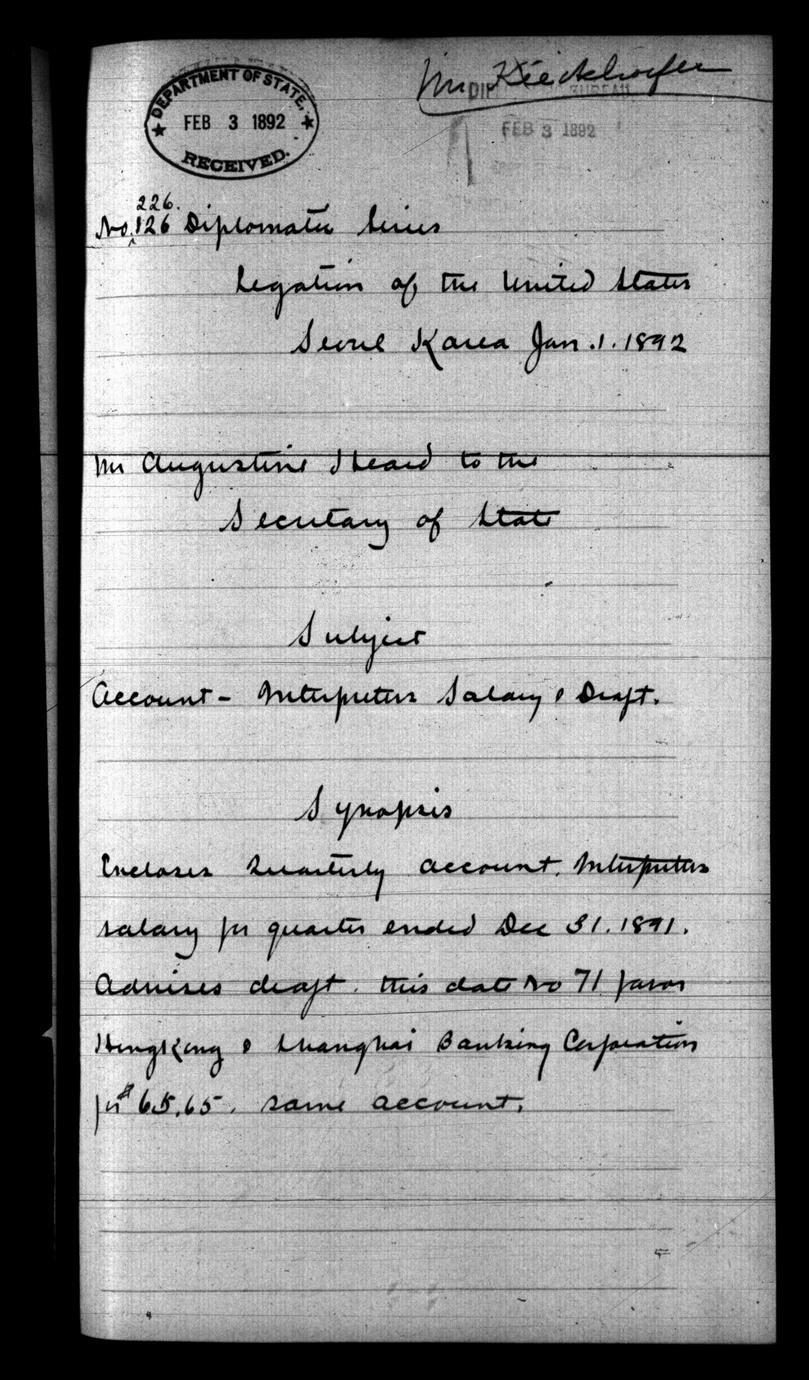 Mr Kieckhoefer
DEPARTMENT OF STATE,
FEB 3 1892
RECEIVED.
DIP BUREAU
FEB 3 1892
226.
No. 126 Diplomatic Series
Legation of the United States
Seoul Korea Jan. 1. 1892
Mr Augustine Heard to the
Secretary of State
Subject
Account - Interpreters Salary & Draft.
Synopsis
Encloses Quarterly account. Interpreters
salary for quarter ended Dec 31. 1891.
Advises draft. this date No 71 favor
HongKong & Shanghai Banking Corporation
for $65.65. same account.